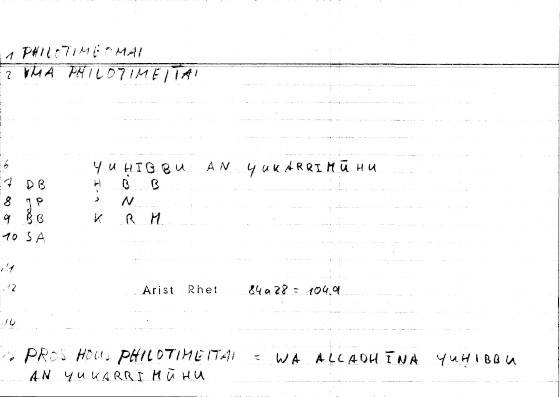 1 PHILOTIMEOMAI
2 VMA PHILOTIMEITAI
6 YUḤIBBU AN YUKARRIMŪHU
7 DB Ḥ B B
8 JP ʾ N
9 BB K R M
10 SA
11
12 Arist Rhet 84a28 = 104,9
14
PROS HOUS PHILOTIMEITAI = WA ALLADHĪNA YUḤIBBU
AN YUKARRIMŪHU